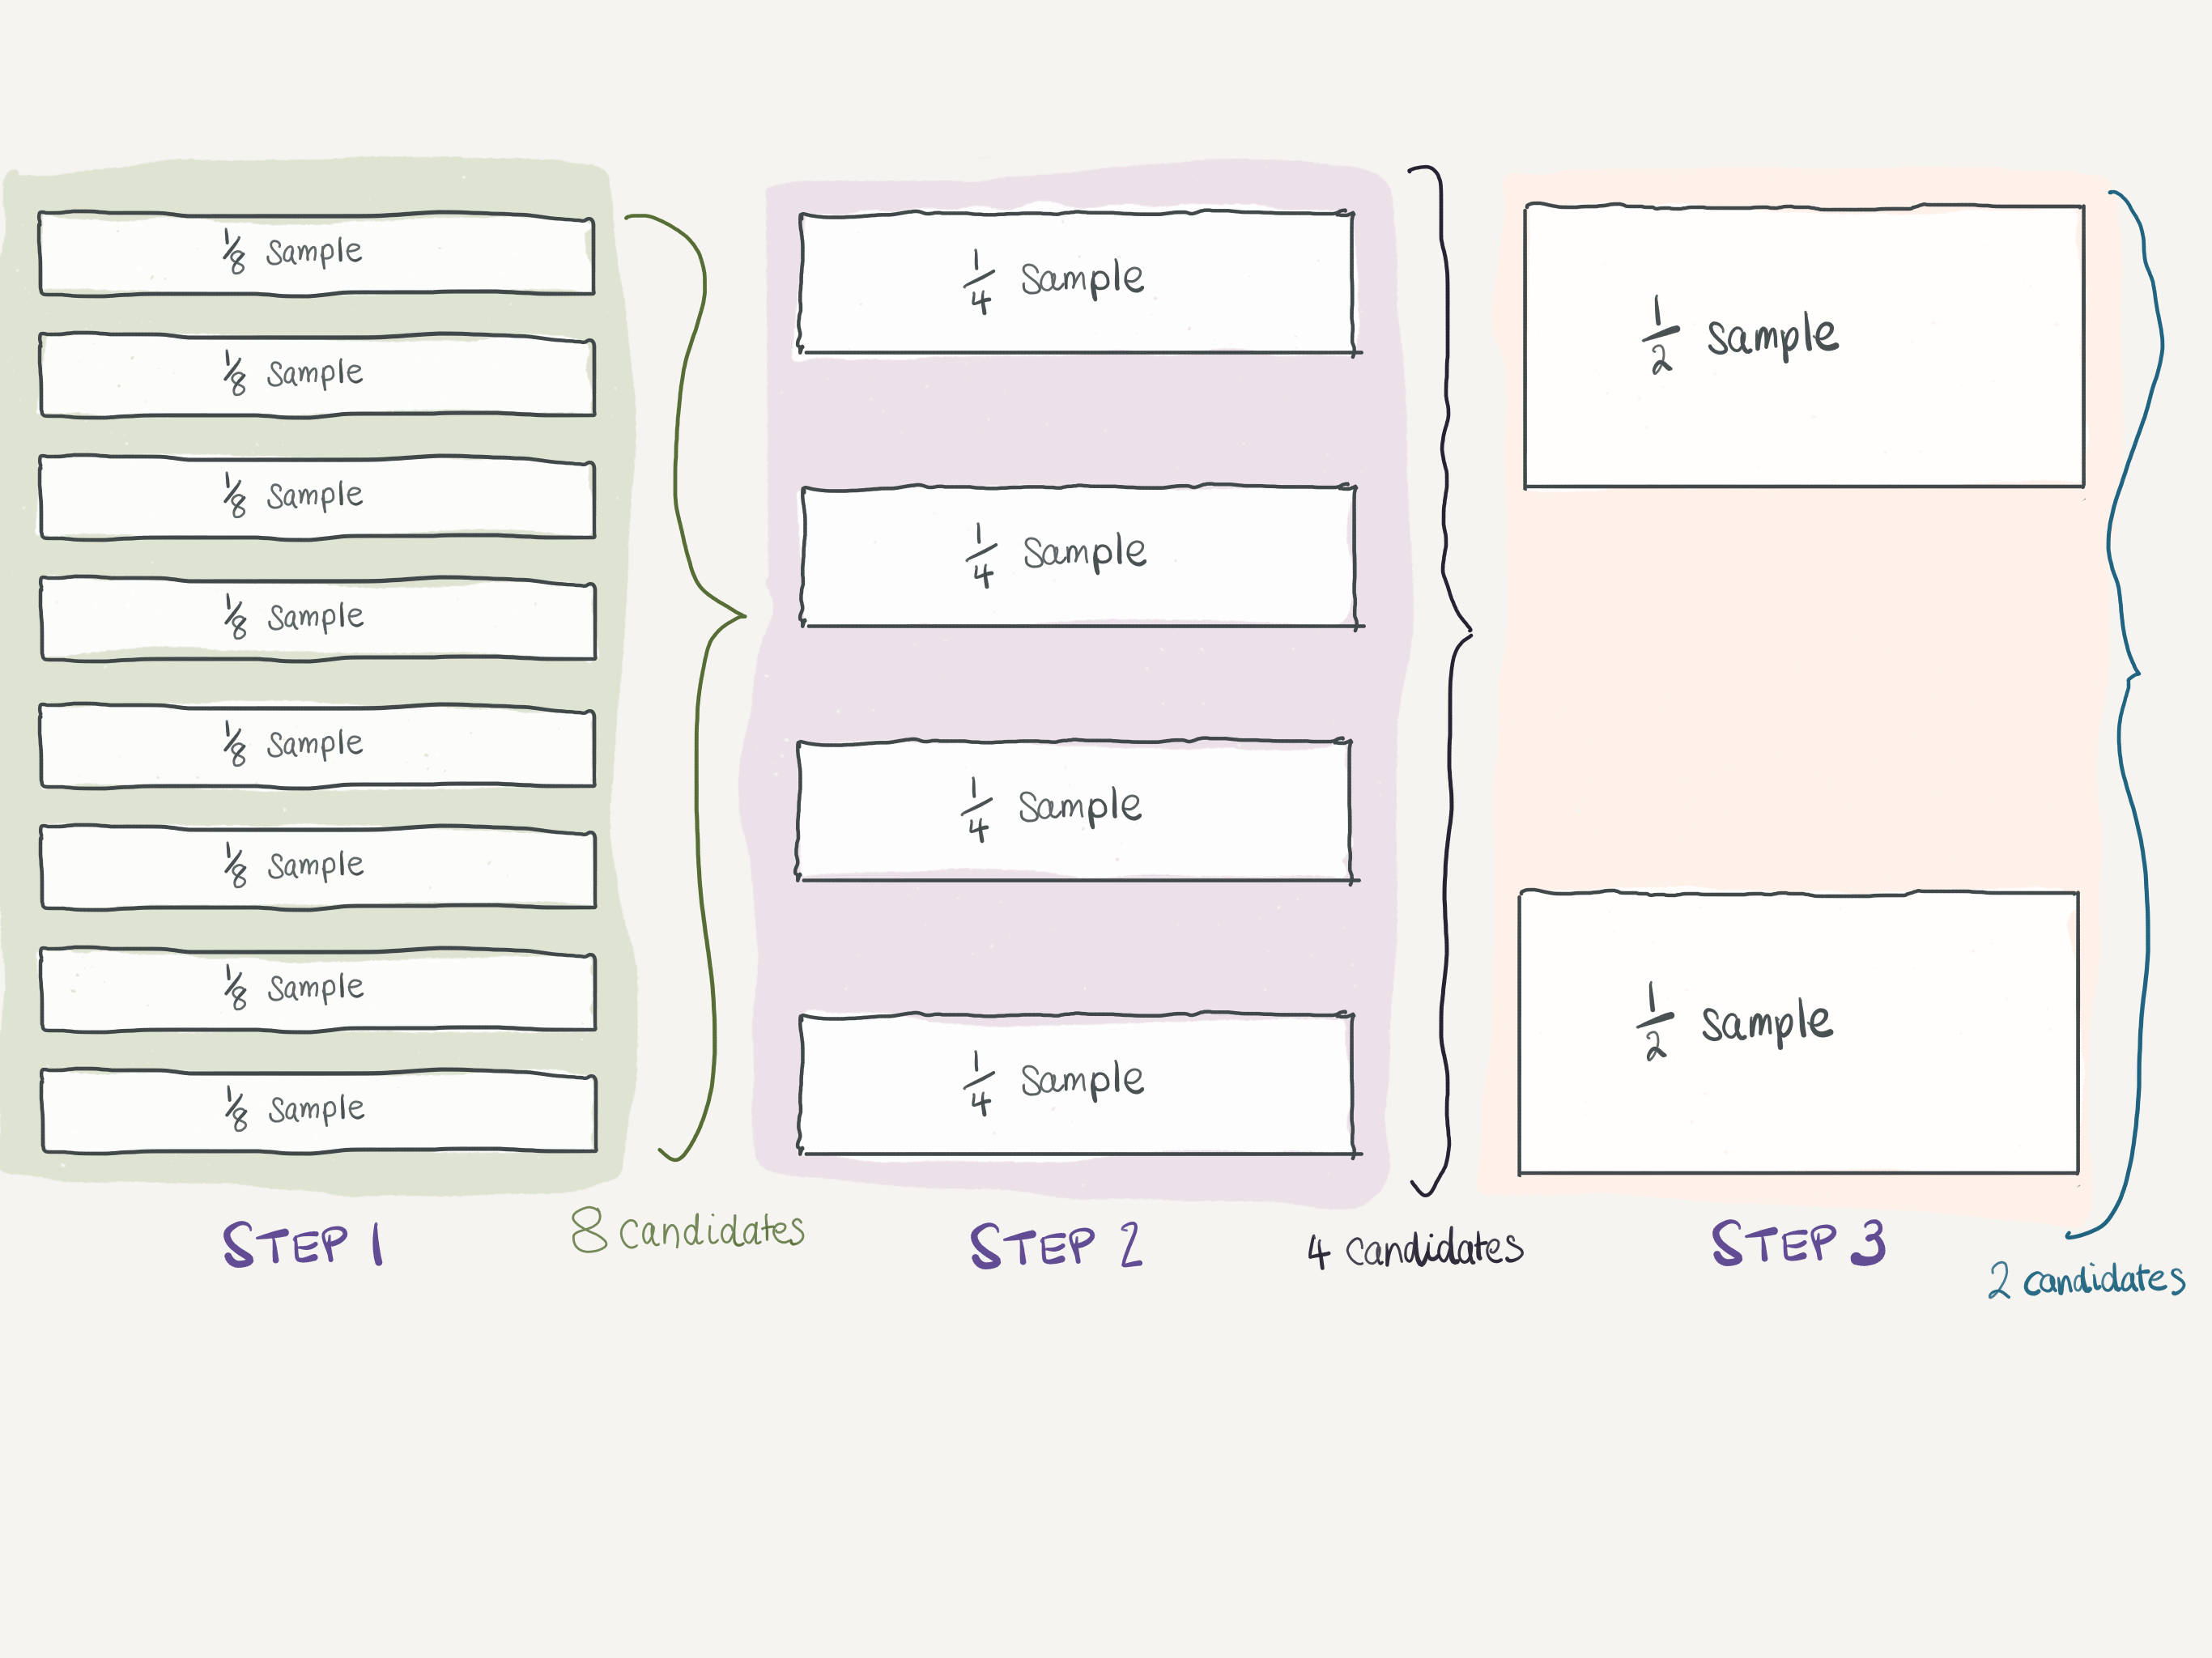 1/8 Sample
1/8 Sample
1/8 Sample
1/8 Sample
1/8 Sample
1/8 Sample
1/8 Sample
1/8 Sample
STEP 1
8 candidates
1/4 Sample
1/4 Sample
1/4 Sample
1/4 Sample
STEP 2
4 candidates
1/2 Sample
1/2 Sample
STEP 3
2 candidates